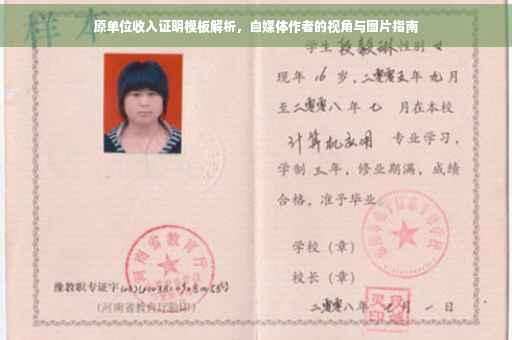 原单位收入证明模板解析，自媒体作者的视角与图片指南
样本
学生 段毅琳 性别 女
现年 16 岁，二零零五年 九月
至二零零八年 七 月在本校
计算机应用 专业学习，
学制 三年，修业期满，成绩
合格，准予毕业
学校（章）
校长（章）
二零零八年 月 一 日
河南省教育厅
豫教职专证字
（河南省教育厅验印）